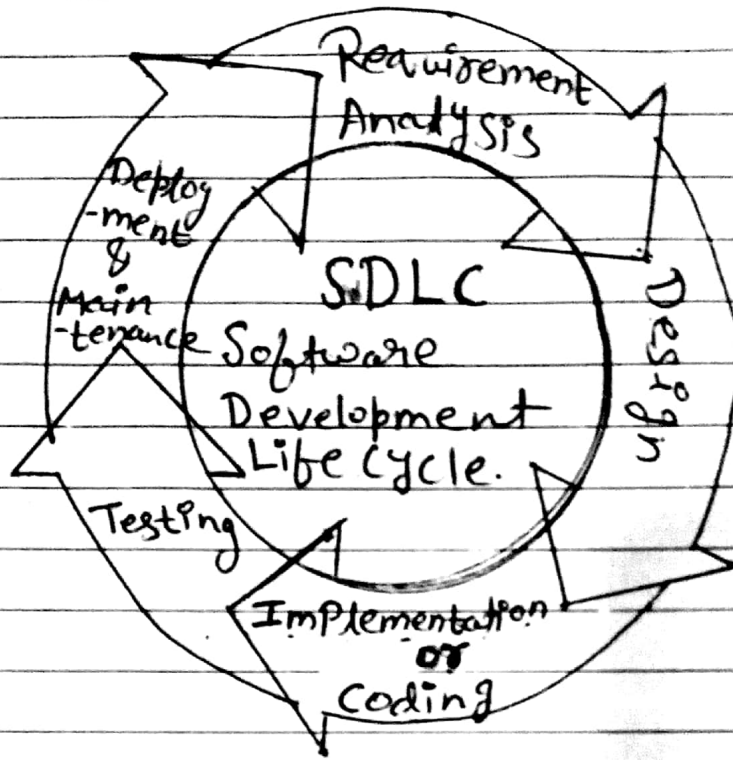 Requirement
Analysis
Design
Implementation
or
Coding
Testing
Deploy
-ment
&
Main
-tenance
SDLC
Software
Development
Life Cycle.